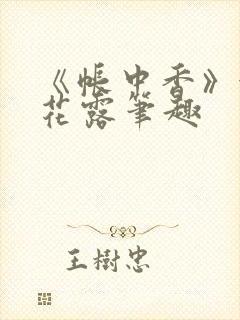 《帐中香》
花露笔趣
王樹忠